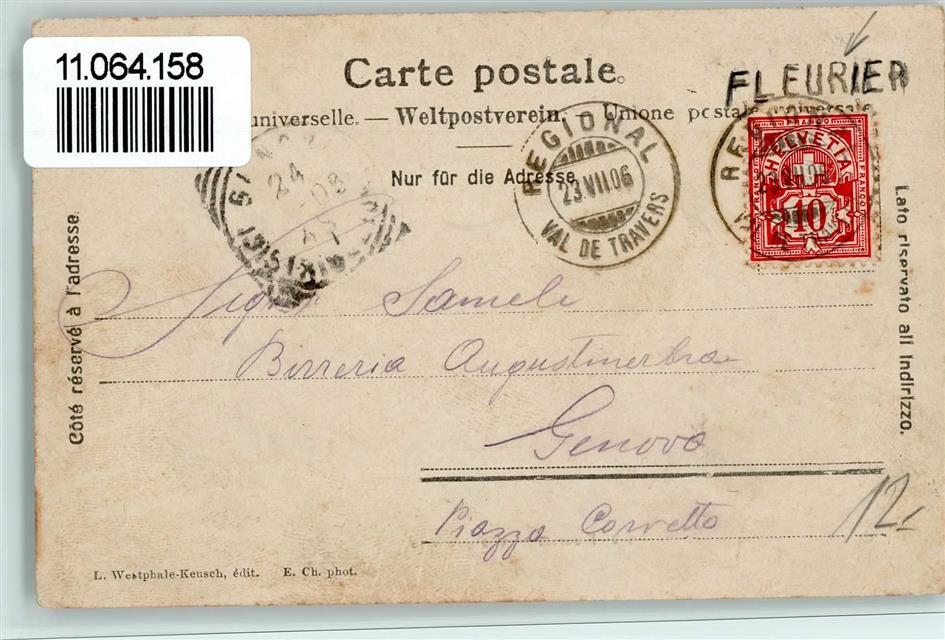 11.064.158
Carte postale.
FLEURIER
universelle. — Weltpostverein. Unione postale universale
Nur für die Adresse
REGIONAL
23.VII.06
VAL DE TRAVERS
FRANCO
HELVETIA
FRANCO
FRANCO
10
24
Côté réservé à l'adresse.
Lato riservato all indirizzo.
Signor Sameli
Birreria Augustinerbrau
Genova
Piazza Corvetto
12.-
L. Westphale-Keusch, édit. E. Ch. phot.